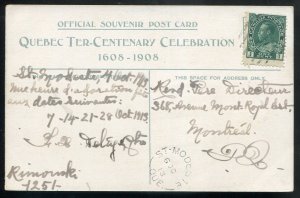 OFFICIAL SOUVENIR POST CARD
QUEBEC TER-CENTENARY CELEBRATION
1608-1908
THIS SPACE FOR ADDRESS ONLY.
St. Modeste 4 Oct. 1913
Une heure d'adoration
aux dates suivantes:
7-14-21-28 Oct 1913
Rimouski
1251.
Revd Père Directeur
368, Avenue Mont Royal Est
Montréal
P.Q.
ST-MODESTE
QUE